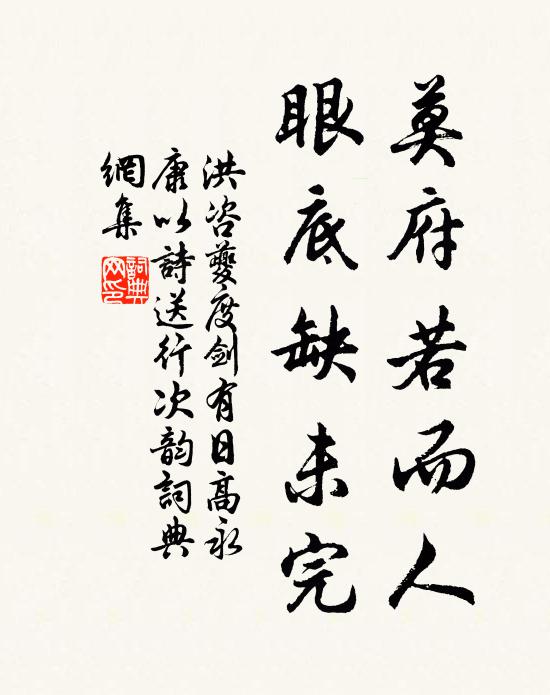 莫府若而人
眼底缺未完
洪咨夔度劍有日高永
康以詩送行次韵詞典
網集
詞典
网印